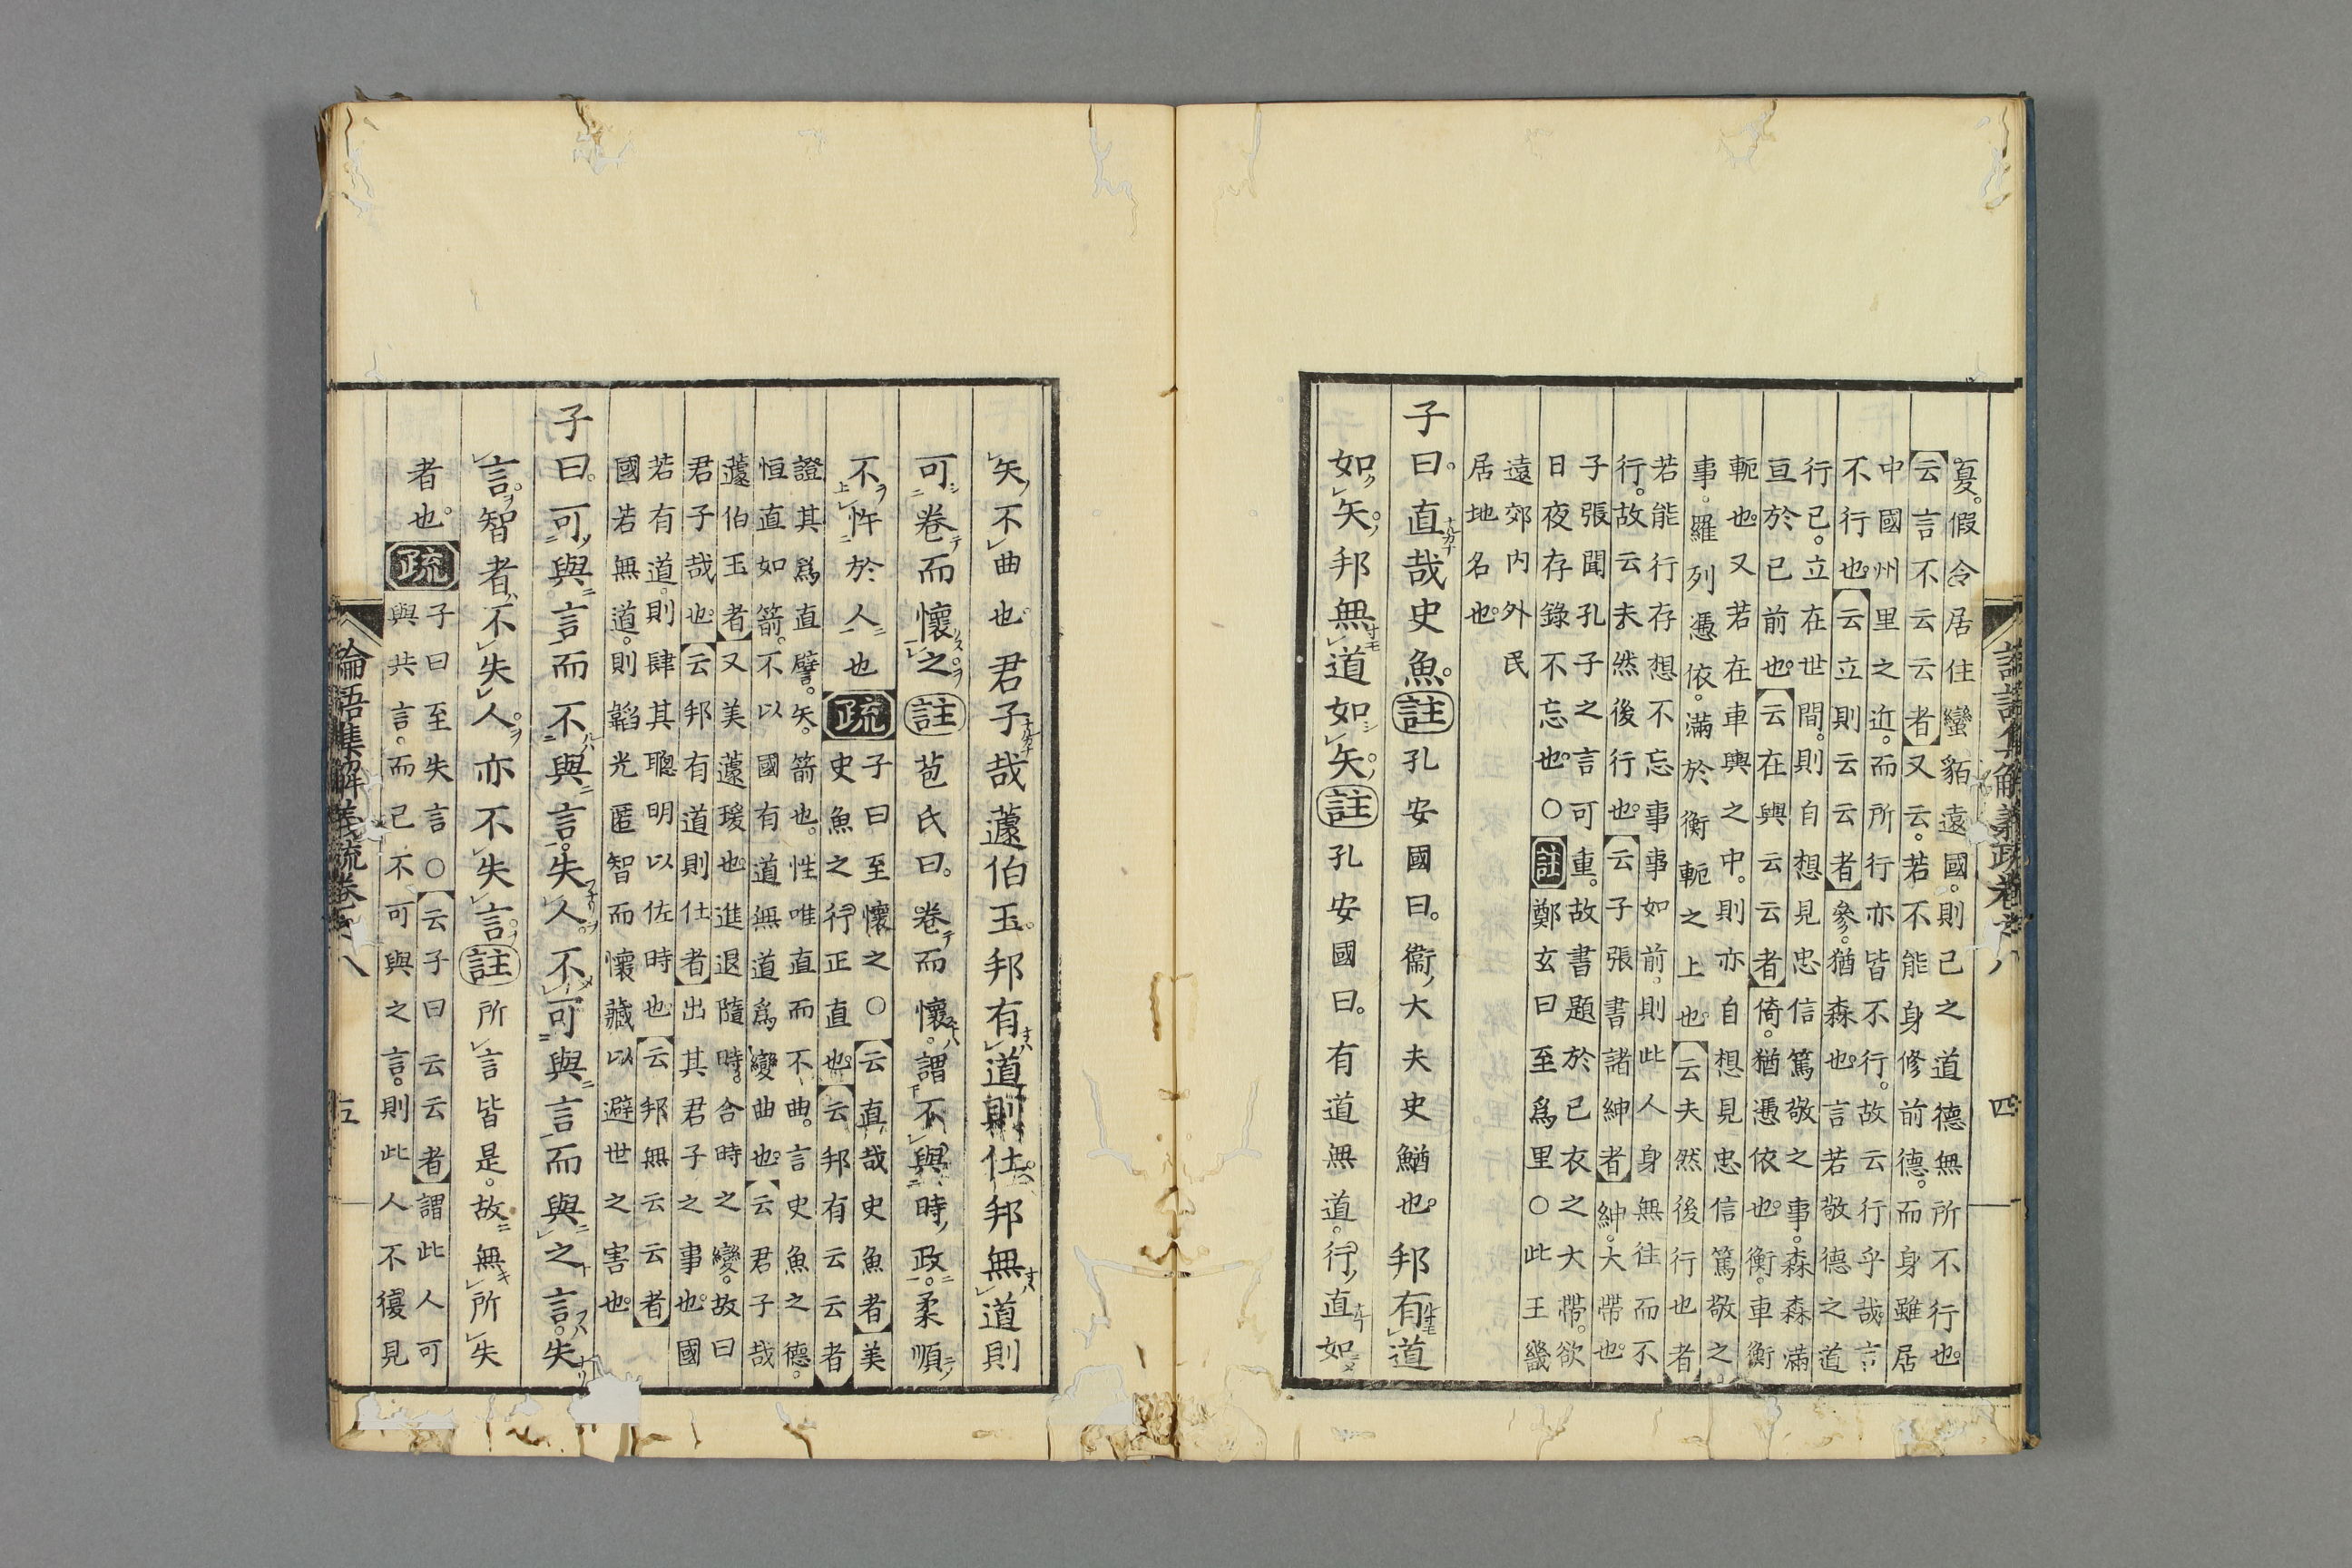 夏。假令居住蠻貊遠國。則己之道德無所不行也。
云言不云云者又云。若不能身修前德。而身雖居
中國州里之近。而所行亦皆不行。故云行乎哉。言
不行也。云立則云云者參。猶森也。言若敬德之道
行已。立在世間。則自想見忠信篤敬之事。森森滿
亘於已前也。云在輿云云者倚。猶憑依也。衡。車衡
軛也。又若在車輿之中。則亦自想見忠信篤敬之
事。羅列憑依。滿於衡軛之上也。云夫然後行也者
若能行存想不忘事事如前。則此人身無往而不
行。故云夫然後行也。云子張書諸紳者紳。大帶也。
子張聞孔子之言可重。故書題於已衣之大帶。欲
日夜存錄不忘也。○註鄭玄曰至爲里○此王畿
遠郊內外民
居地名也。
子曰。直哉史魚。註孔安國曰。衞大夫史鰌也。邦有道
如矢。邦無道如矢。註孔安國曰。有道無道。行直如
四
矢不曲也。君子哉蘧伯玉。邦有道則仕。邦無道則
可卷而懷之。註苞氏曰。卷而懷。謂不與時政。柔順
不忤於人也疏子曰至懷之○云直哉史魚者美
史魚之行正直也。云邦有云云者
證其爲直譬。矢。箭也。性唯直而不曲。言史魚之德。
恒直如箭。不以國有道無道爲變曲也。云君子哉
蘧伯玉者又美蘧瑗也。進退隨時。合時之變。故曰
君子哉也。云邦有道則仕者出其君子之事也。國
若有道。則肆其聰明以佐時也云邦無云云者
國若無道。則韜光匿智而懷藏以避世之害也。
子曰。可與言而不與言。失人。不可與言而與之言。失
言。智者不失人。亦不失言。註所言皆是。故無所失
者也。疏子曰至失言○云子曰云云者謂此人可
與共言。而己不可與之言。則此人不復見
論語集解義疏卷八
五